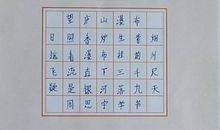 望庐山瀑布
日照香炉生紫烟
遥看瀑布挂前川
飞流直下三千尺
疑是银河落九天
周思宁学书